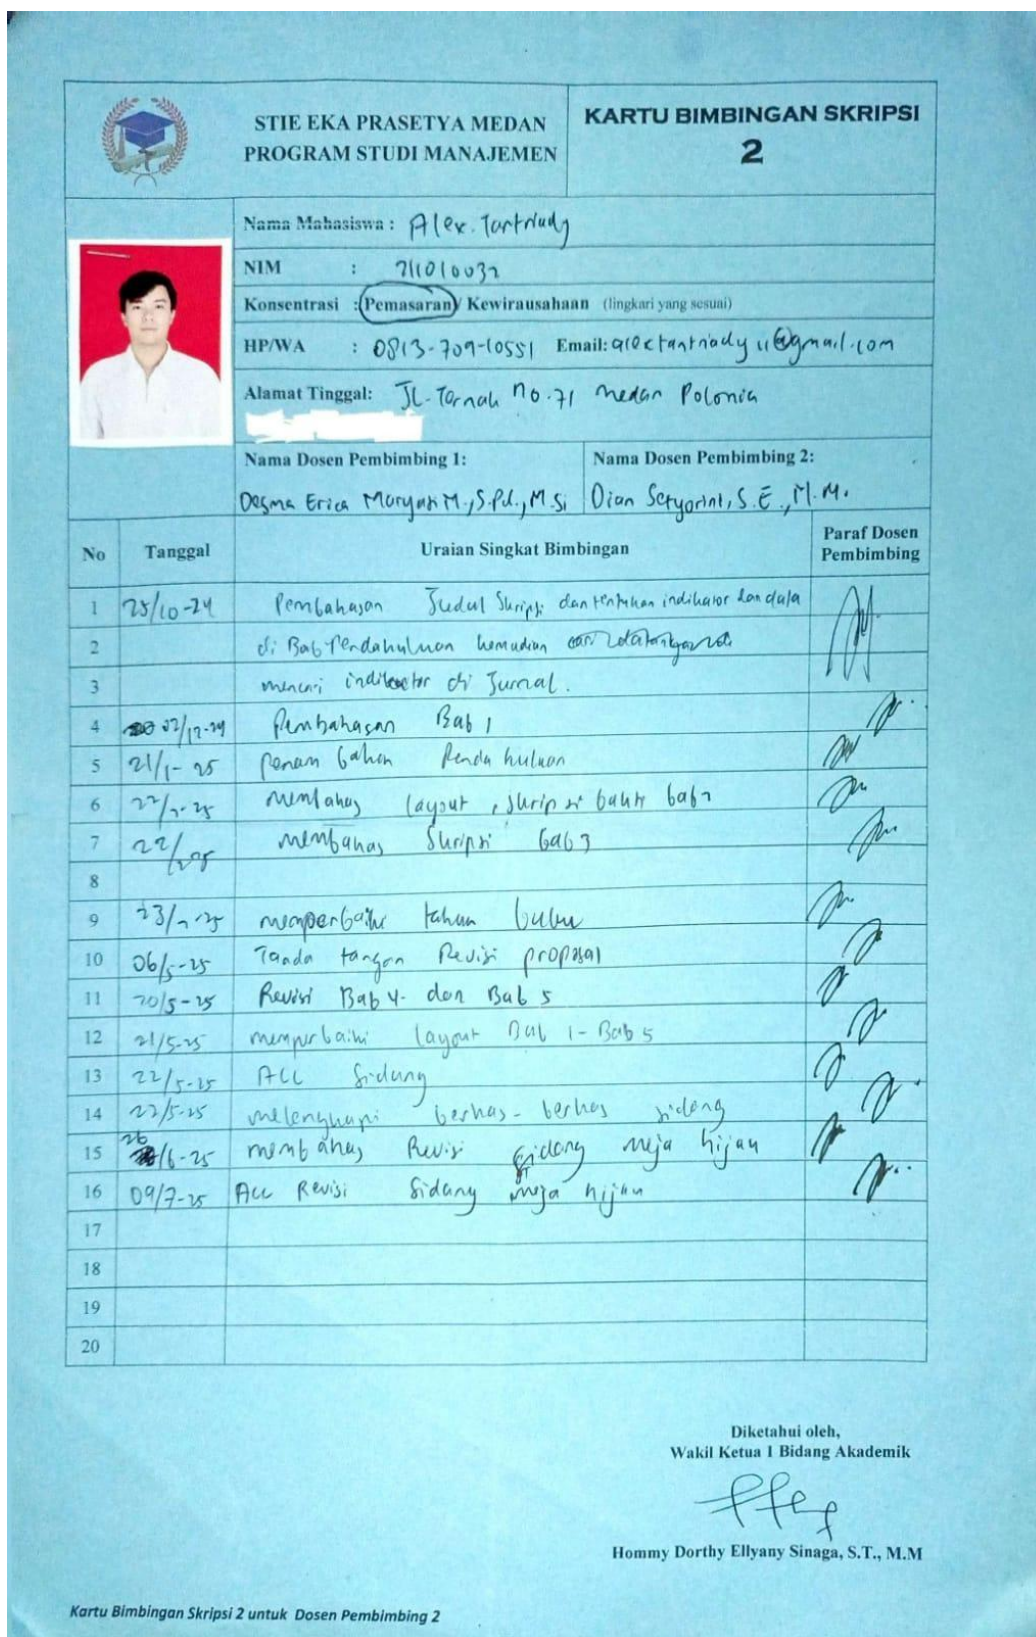 STIE EKA PRASETYA MEDAN
PROGRAM STUDI MANAJEMEN
KARTU BIMBINGAN SKRIPSI
2
Nama Mahasiswa : Alex Tantriady
NIM : 211010032
Konsentrasi : Pemasaran / Kewirausahaan (lingkari yang sesuai)
HP/WA : 0813-709-10551 Email: alextantriady11@gmail.com
Alamat Tinggal: JL. Ternak No.71 Medan Polonia
Nama Dosen Pembimbing 1: Nama Dosen Pembimbing 2:
Desma Erica Maryati M., S.Pd., M.Si Dian Setyorini, S.E., M.M.
No Tanggal Uraian Singkat Bimbingan Paraf Dosen Pembimbing
1 25/10-24 Pembahasan Judul Skripsi dan tentukan indikator dan data
2 di Bab Pendahuluan kemudian cari
3 mencari indikator di Jurnal.
4 02/12-24 Pembahasan Bab 1
5 21/1-25 penambahan Pendahuluan
6 membahas layout, skripsi bab2
7 membahas Skripsi bab3
8
9 memperbaiki tahun buku
10 06/5-25 Tanda tangan Revisi proposal
11 20/5-25 Revisi Bab 4 dan Bab 5
12 21/5-25 memperbaiki layout Bab 1-Bab 5
13 22/5-25 ACC Sidang
14 22/5-25 melengkapi berkas-berkas sidang
15 26/6-25 membahas Revisi Sidang meja hijau
16 09/7-25 Acc Revisi Sidang meja hijau
17
18
19
20
Diketahui oleh,
Wakil Ketua I Bidang Akademik
Hommy Dorthy Ellyany Sinaga, S.T., M.M
Kartu Bimbingan Skripsi 2 untuk Dosen Pembimbing 2